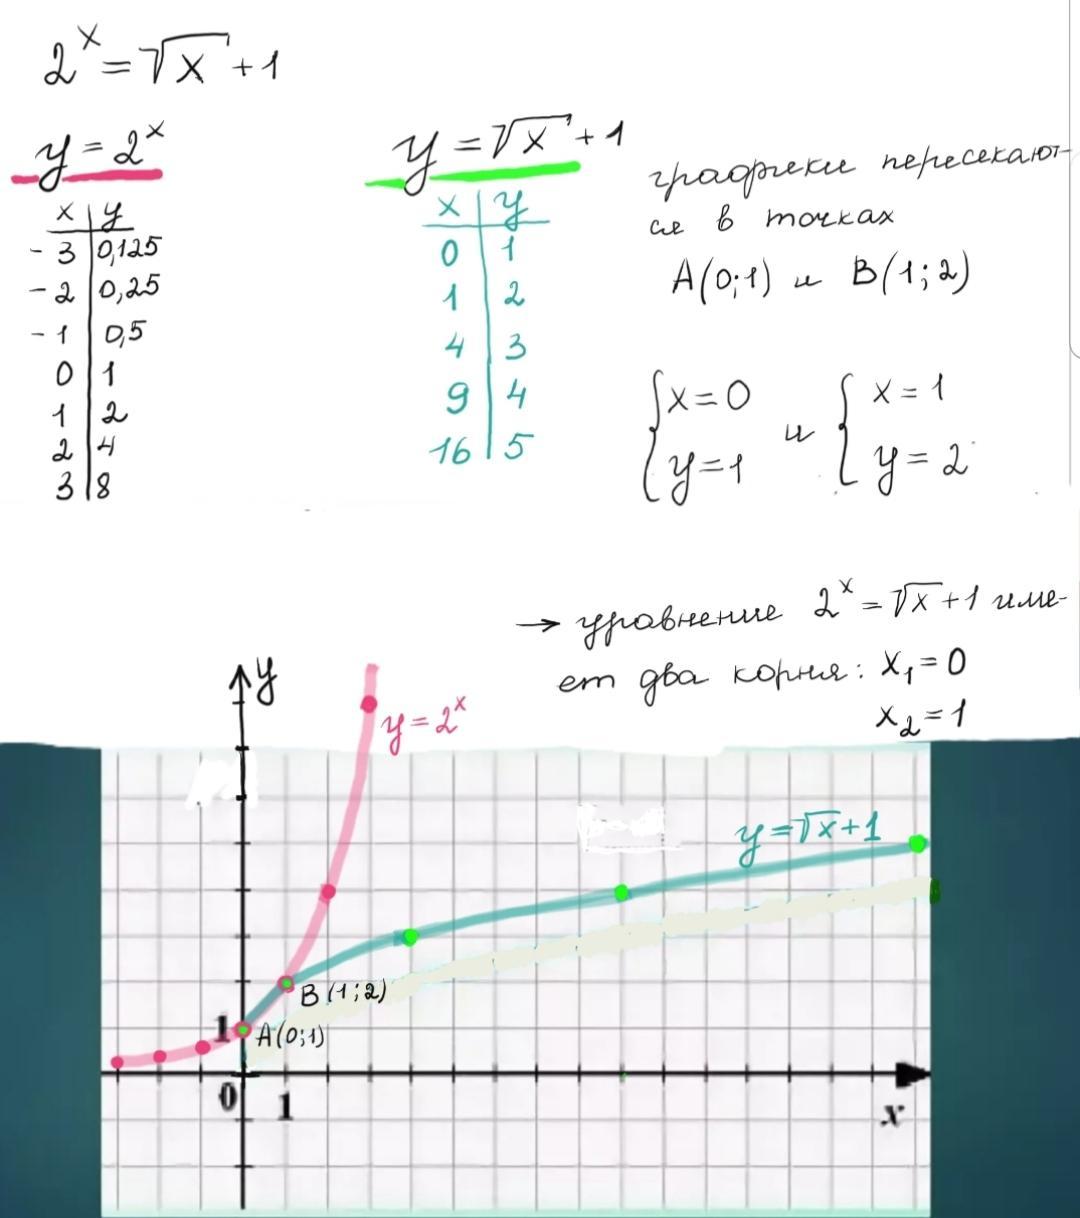 2ˣ = √x + 1
y = 2ˣ
x | y
-3 | 0,125
-2 | 0,25
-1 | 0,5
0 | 1
1 | 2
2 | 4
3 | 8
y = √x + 1
x | y
0 | 1
1 | 2
4 | 3
9 | 4
16 | 5
графики пересекают-
ся в точках
A(0;1) и B(1;2)
{x = 0
{y = 1
и
{x = 1
{y = 2
→ уравнение 2ˣ = √x + 1 име-
ет два корня: x₁ = 0
x₂ = 1
y
y = 2ˣ
y = √x + 1
B(1;2)
1
A(0;1)
0
1
x